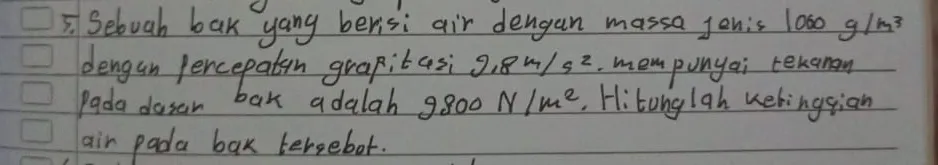 5. Sebuah bak yang berisi air dengan massa jenis 1000 g/m³
dengan percepatan grapitasi 9,8 m/s². mempunyai tekanan
pada dasar bak adalah 9800 N/m². Hitunglah ketinggian
air pada bak tersebut.